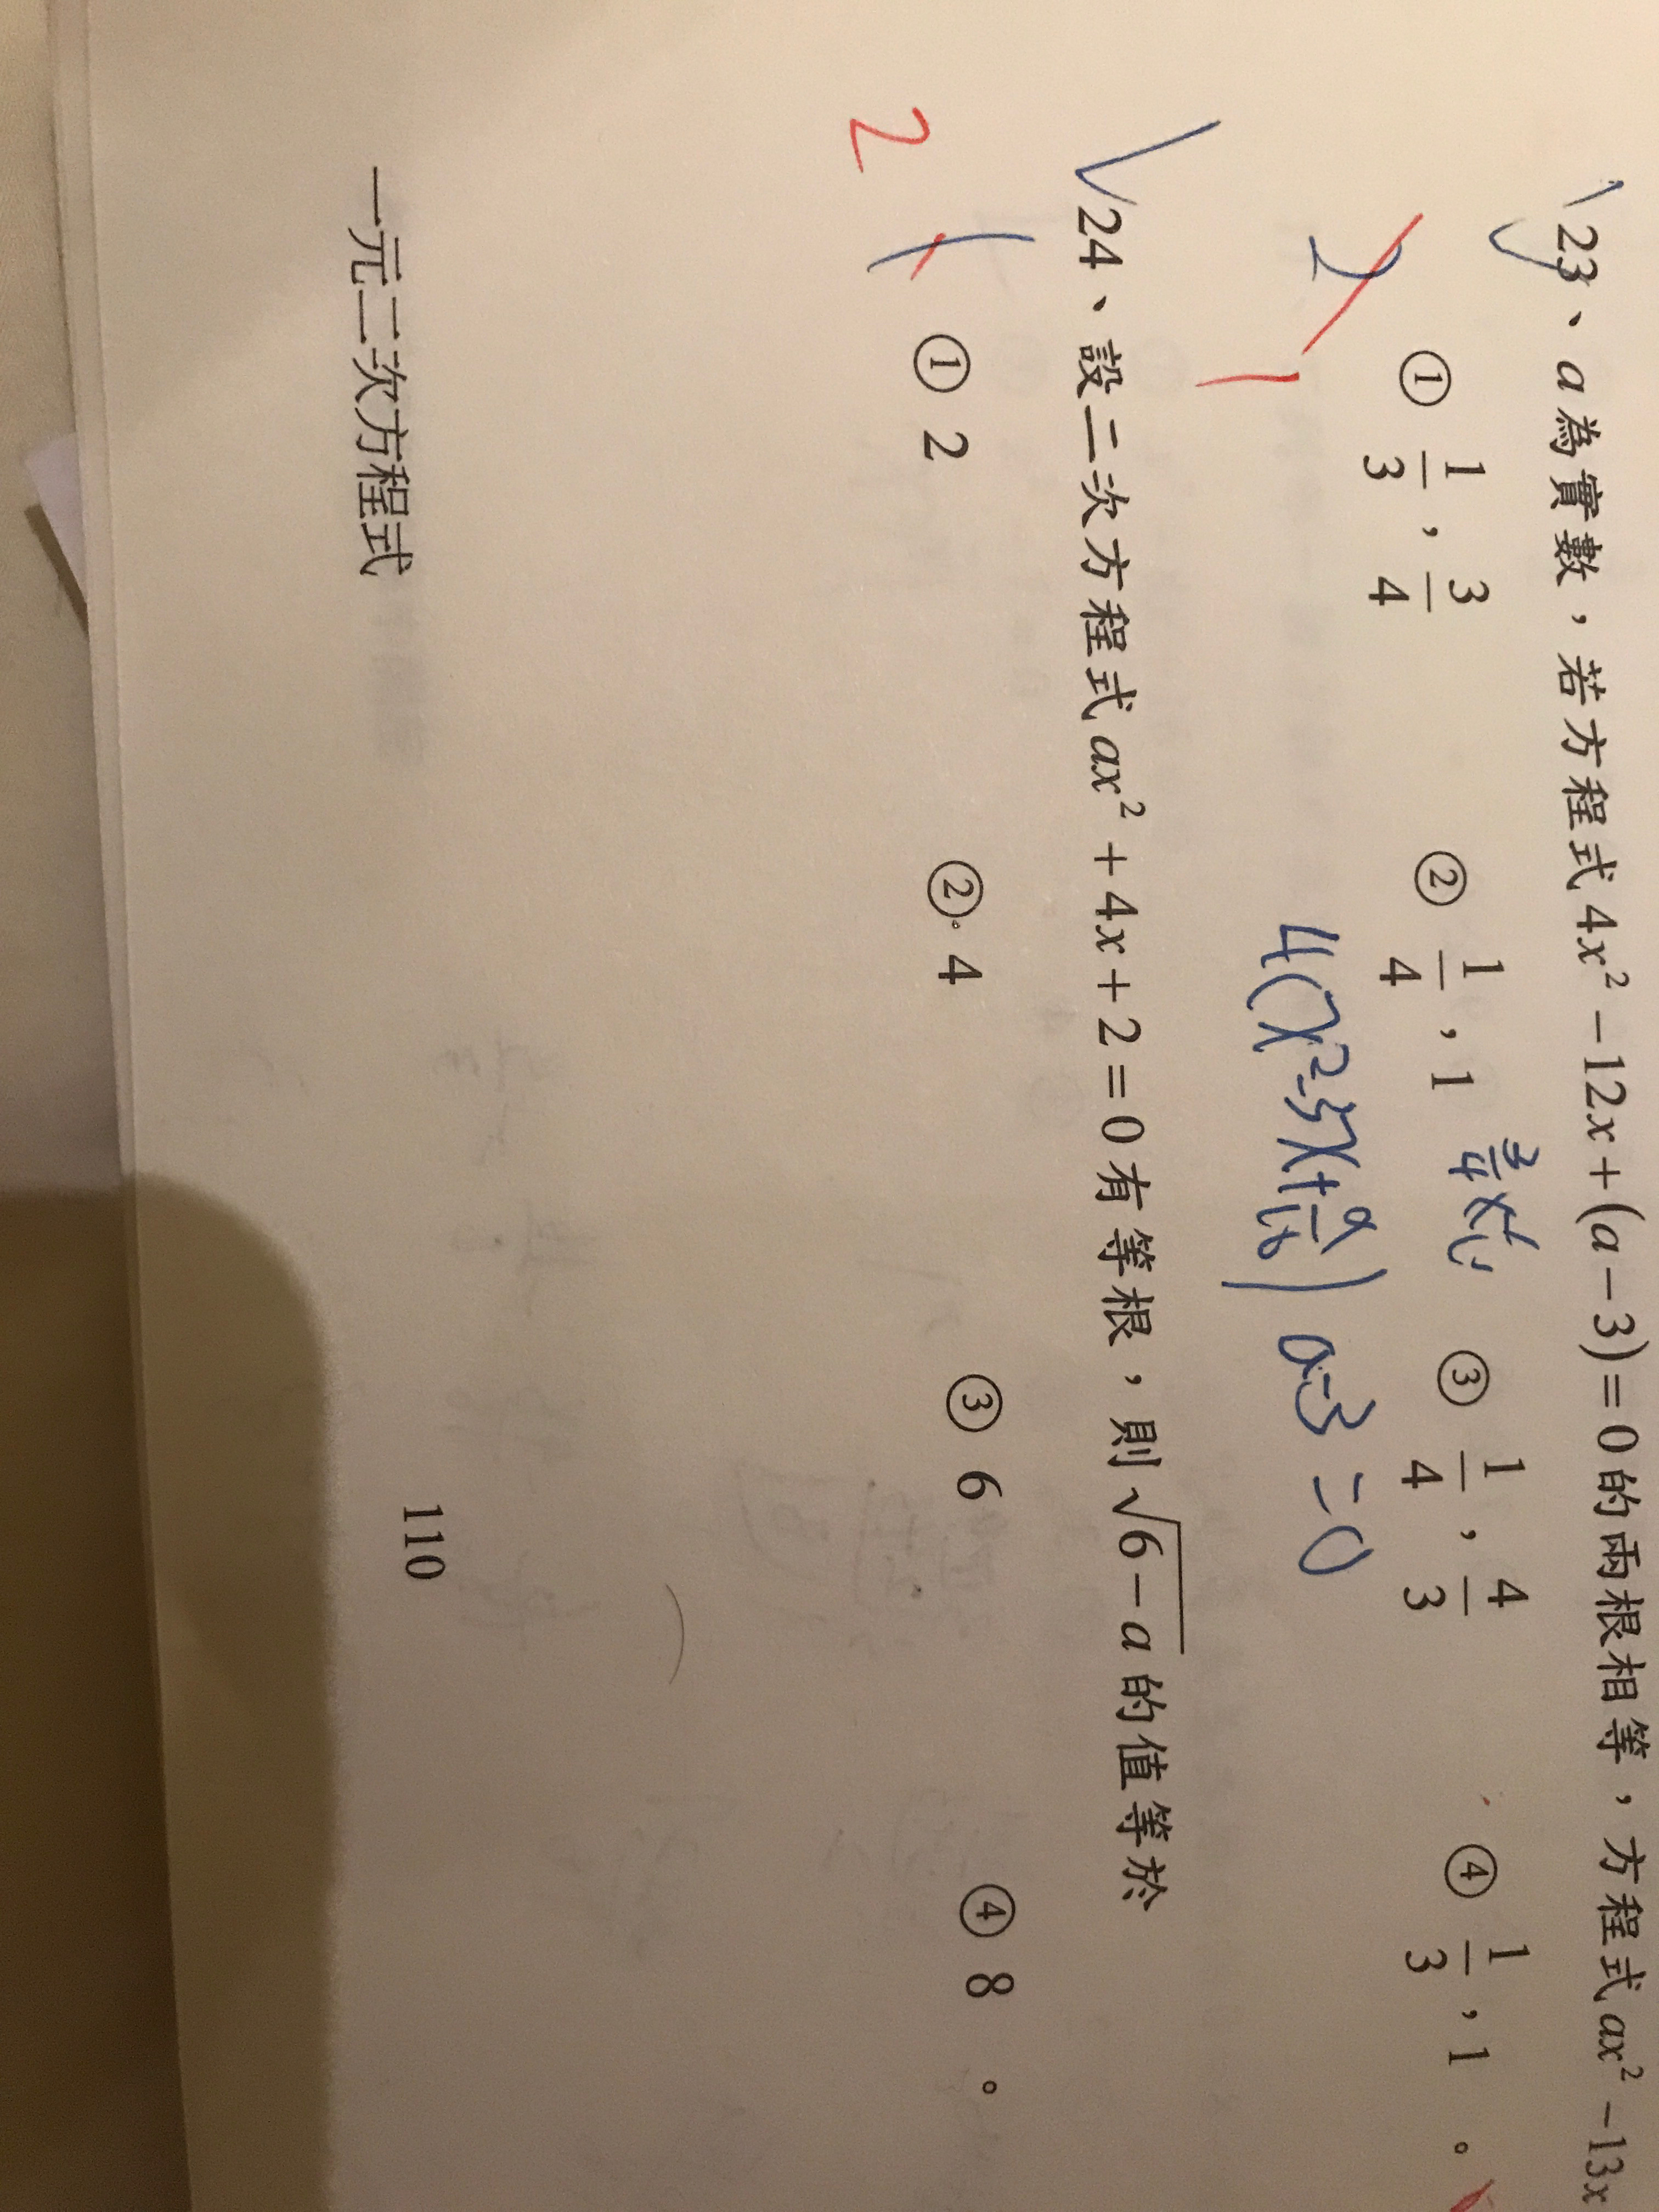 23、a為實數，若方程式4x²－12x＋(a－3)＝0的兩根相等，方程式ax²－13x
① 1/3，3/4 ② 1/4，1 ③ 1/4，4/3 ④ 1/3，1。
2 1
4(x²-3x+9/16) a-3=0
24、設二次方程式ax²＋4x＋2＝0有等根，則√(6－a)的值等於
2 1 ① 2 ② 4 ③ 6 ④ 8。
一元二次方程式 110